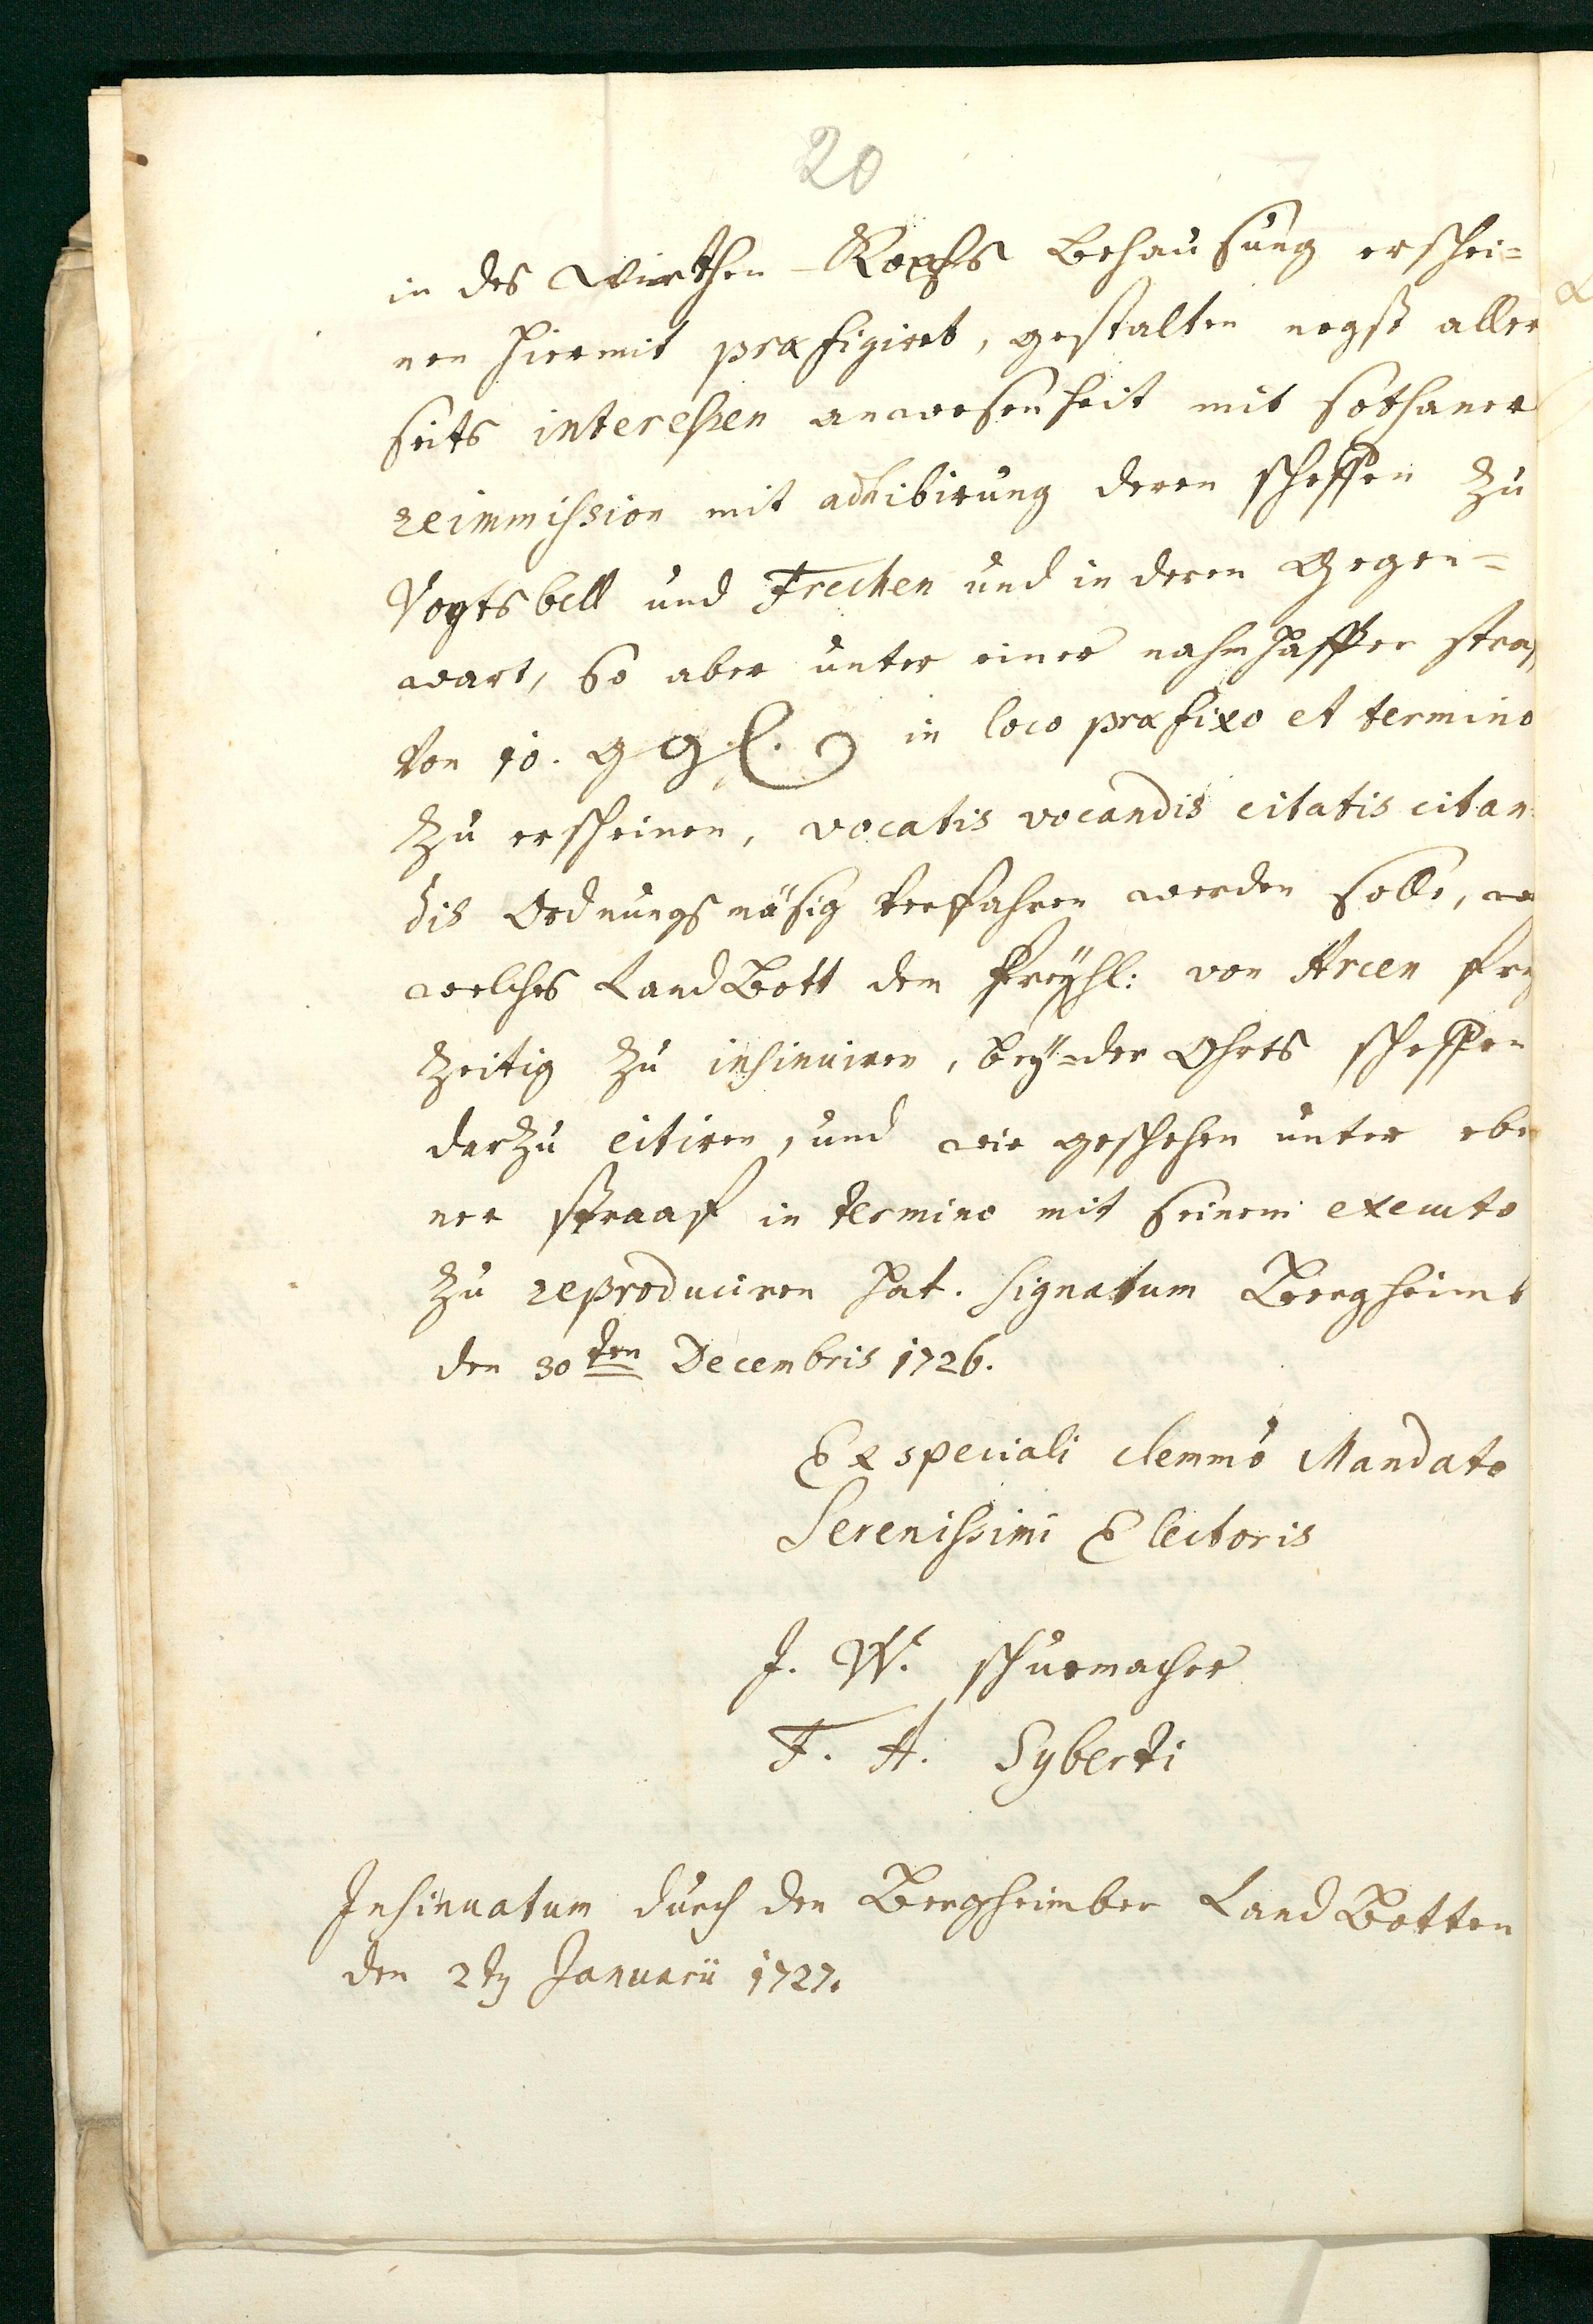 20
in des wirthen Kopfs behausung erschei=
nen hiermit præfigiret, gestalten negst aller
seits interessen anwesenheit mit sothaner
reimmission mit adhibirung deren scheffen zu
Vogtsbell und Frechen und in deren gegen=
wart, so aber unter einer nahmhafften straf
von 10. ggl. in loco præfixo et termino
zu erscheinen, vocatis vocandis citatis citan
dis Ordnungsmäsig verfahren werden solle,
welches LandBott dem freyhl: von Arcen
zeitig zu insinuiren, bey=der Ohrts scheffen
darzu citiren, und wie geschehen unter ebe
ner straaf in termino mit seinem executo
zu reproduciren hat. Signatum Bergheimb
den 30ten Decembris 1726.
Ex speciali clemmo Mandato
Serenissimi Electoris
J. W. schumacher
F. A. Syberti
Insinuatum durch den Bergheimber LandBotten
den 2tn Januarii 1727.